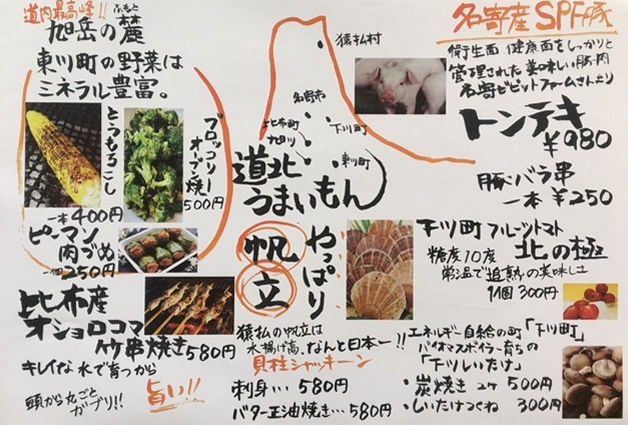 道内最高峰!!
旭岳の麓
ふもと
東川町の野菜は
ミネラル豊富。
とうもろこし
一本400円
ブロッコリー
オーブン焼
500円
ピーマン
肉づめ
一個250円
比布産
オショロコマ
竹串焼き580円
キレイな水で育つから
頭から丸ごと
ガブリ!!
旨い!!
猿払村
名寄市
比布町
旭川
下川町
東川町
道北
うまいもん
やっぱり
帆立
猿払の帆立は
水揚げ高、なんと日本一!!
貝柱シャッキーン
刺身…580円
バター正油焼き…580円
名寄産SPF豚
衛生面 健康面をしっかりと
管理された美味しい豚肉
名寄ビビットファームさんより
トンテキ
¥980
豚バラ串
一本¥250
下川町フルーツトマト
北の極
糖度10度
常温で追熟の美味しさ
1個300円
エネルギー自給の町「下川町」
バイオマスボイラー育ちの
「下川しいたけ」
・炭焼き 2ケ 500円
・しいたけつくね 300円